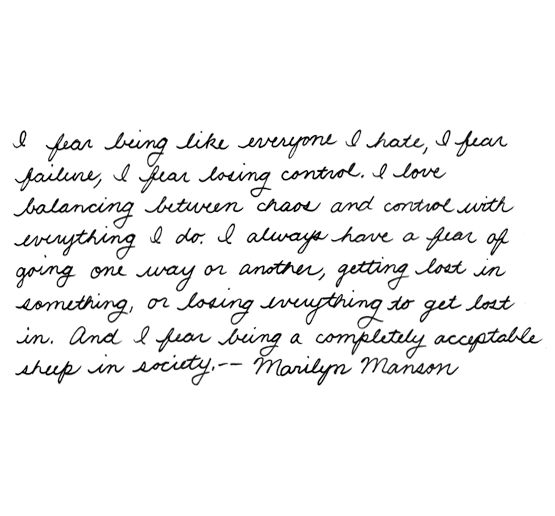 I fear being like everyone I hate, I fear
failure, I fear losing control. I love
balancing between chaos and control with
everything I do. I always have a fear of
going one way or another, getting lost in
something, or losing everything to get lost
in. And I fear being a completely acceptable
sheep in society.-- Marilyn Manson